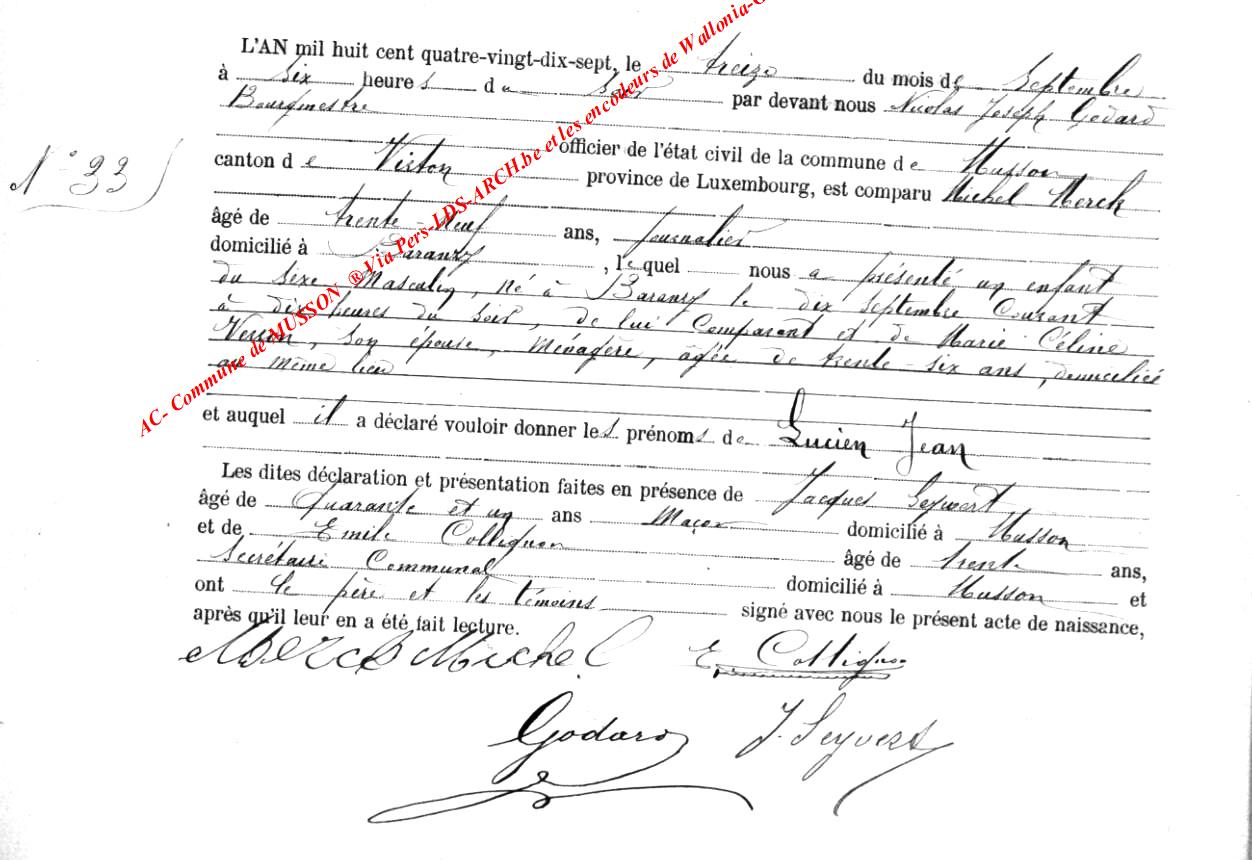 AC- Commune de MUSSON ® Via Pers-LDS-ARCH.be et les encodeurs de Wallonia-G
L'AN mil huit cent quatre-vingt-dix-sept, le treize du mois de Septembre
à Six heures du Soir par devant nous Nicolas Joseph Godard
Bourgmestre
officier de l'état civil de la commune de Musson
N° 33
canton de Virton province de Luxembourg, est comparu Michel Merch
âgé de trente-neuf ans, journalier
domicilié à Baranzy, lequel nous a présenté un enfant
du sexe Masculin, né à Baranzy le dix septembre Courant
à dix heures du soir, de lui Comparant et de Marie Céline
son épouse, Ménagère, âgée de trente-six ans, domiciliée
au même lieu
et auquel il a déclaré vouloir donner les prénoms de Lucien Jean
Les dites déclaration et présentation faites en présence de Jacques Seywert
âgé de Quarante et un ans Maçon domicilié à Musson
et de Emile Collignon âgé de trente ans,
Secrétaire Communal domicilié à Musson et
ont le père et les témoins signé avec nous le présent acte de naissance,
après qu'il leur en a été fait lecture.
Merch Michel E Collignon
Godard J. Seywert